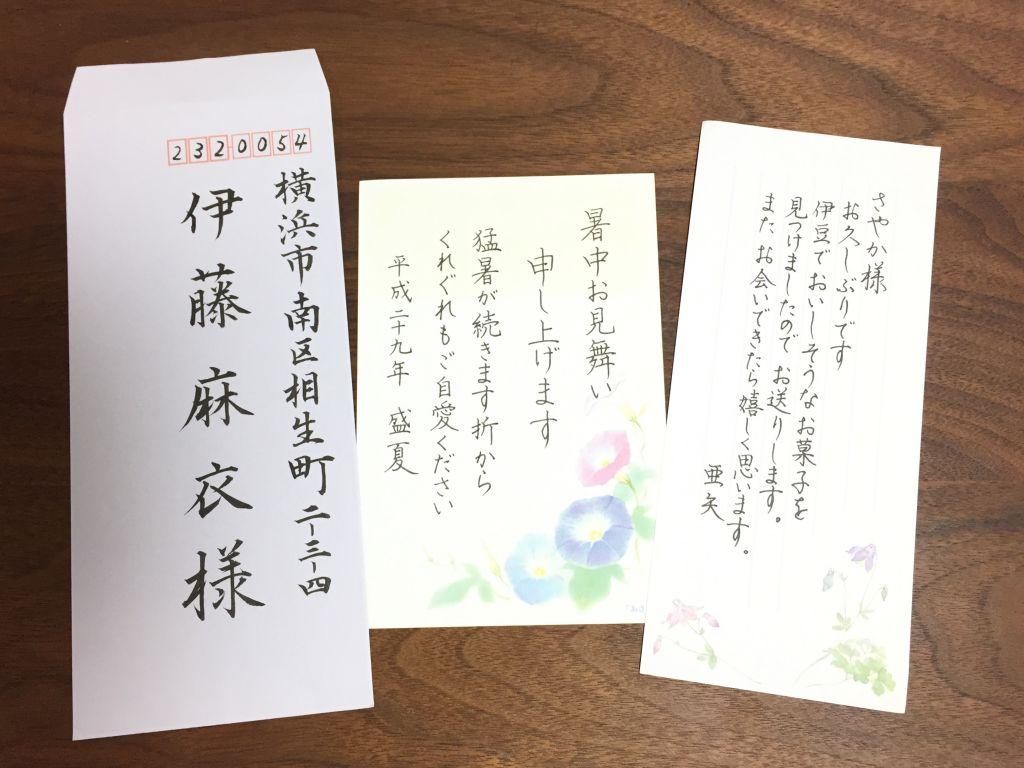 2320054
横浜市南区相生町二-三-四
伊藤麻衣様
暑中お見舞い
申し上げます
猛暑が続きます折から
くれぐれもご自愛ください
平成二十九年 盛夏
さやか様
お久しぶりです
伊豆でおいしそうなお菓子を
見つけましたので お送りします。
また、お会いできたら嬉しく思います。
亜矢